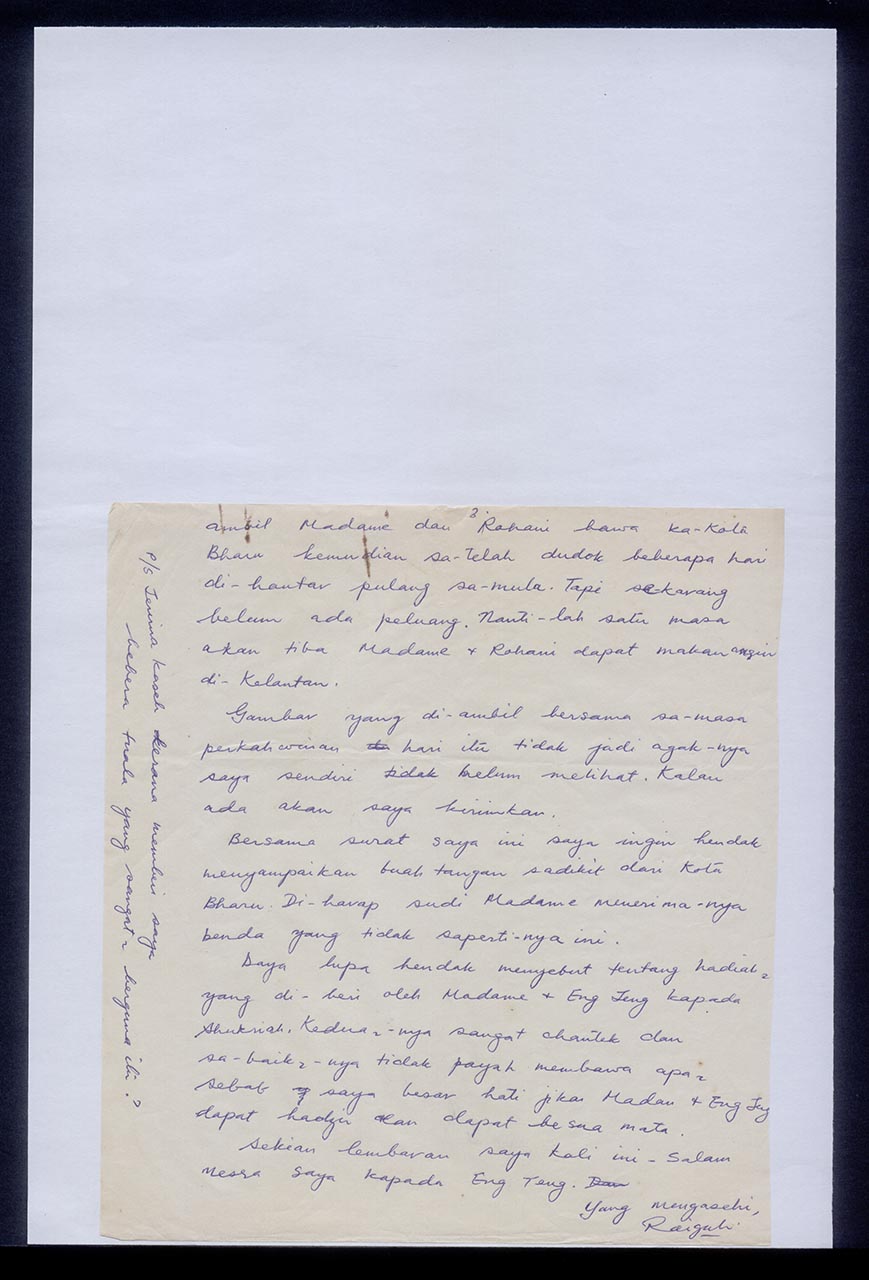 3
ambil Madame dan Rohani bawa ka-Kota
Bharu kemudian sa-telah dudok beberapa hari
di-hantar pulang sa-mula. Tapi sekarang
belum ada peluang. Nanti-lah satu masa
akan tiba Madame & Rohani dapat makan angin
di-Kelantan.
Gambar yang di-ambil bersama sa-masa
perkahwinan hari itu tidak jadi agak-nya
saya sendiri tidak belum melihat. Kalau
ada akan saya kirimkan.
Bersama surat saya ini saya ingin hendak
menyampaikan buah tangan sadikit dari Kota
Bharu. Di-harap sudi Madame menerima-nya
benda yang tidak saperti-nya ini.
Saya lupa hendak menyebut tentang hadiah2
yang di-beri oleh Madame & Eng Teng kapada
Shukriah. Kedua2-nya sangat chantek dan
sa-baik2-nya tidak payah membawa apa2
sebab saya besar hati jika Madam & Eng Teng
dapat hadzir dan dapat besua mata.
Sekian lembaran saya kali ini - Salam
mesra saya kapada Eng Teng. Dan
Yang mengasehi,
P/S Terima kaseh kerana memberi saya
tuala yang sangat2 berguna itu.